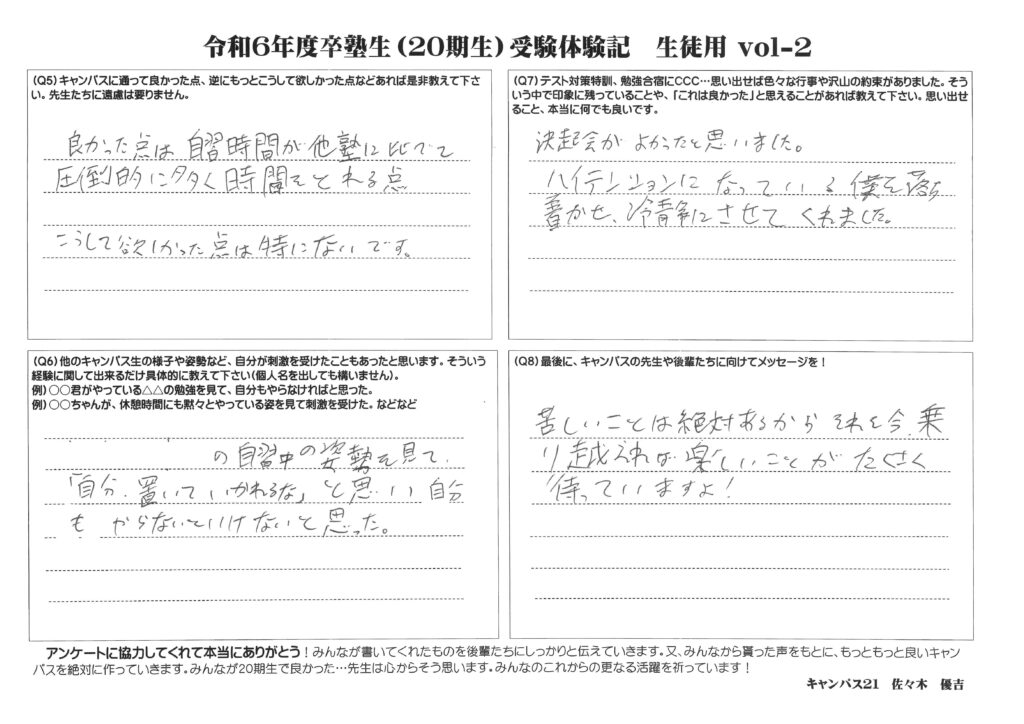 令和6年度卒塾生（20期生）受験体験記　生徒用 vol-2
（Q5）キャンパスに通って良かった点、逆にもっとこうして欲しかった点などあれば是非教えて下さ
い。先生たちに遠慮は要りません。
良かった点は 自習時間が他塾に比べて
圧倒的に多く時間をとれる点
こうして欲しかった点は特にないです。
（Q6）他のキャンパス生の様子や姿勢など、自分が刺激を受けたこともあったと思います。そういう
経験に関して出来るだけ具体的に教えて下さい（個人名を出しても構いません）。
例）○○君がやっている△△の勉強を見て、自分もやらなければと思った。
例）○○ちゃんが、休憩時間にも黙々とやっている姿を見て刺激を受けた。などなど
の自習中の姿勢を見て、
「自分、置いていかれるな」と思い自分
も やらないといけないと思った。
（Q7）テスト対策特訓、勉強合宿にCCC…思い出せば色々な行事や沢山の約束がありました。そう
いう中で印象に残っていることや、「これは良かった」と思えることがあれば教えて下さい。思い出せ
ること、本当に何でも良いです。
決起会がよかったと思いました。
ハイテンションになっている僕を落ち
着かせ、冷静にさせてくれました。
（Q8）最後に、キャンパスの先生や後輩たちに向けてメッセージを！
苦しいことは絶対あるからそれを今、乗
り越えれば楽しいことがたくさく
待っていますよ！
アンケートに協力してくれて本当にありがとう！みんなが書いてくれたものを後輩たちにしっかりと伝えていきます。又、みんなから貰った声をもとに、もっともっと良いキャン
パスを絶対に作っていきます。みんなが20期生で良かった…先生は心からそう思います。みんなのこれからの更なる活躍を祈っています！
キャンパス21　佐々木　優吉